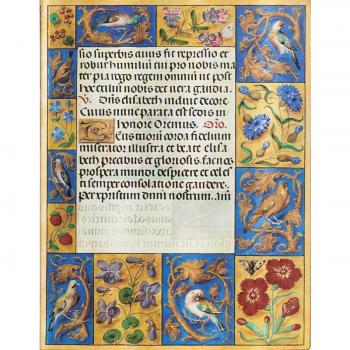 sio superbis cuius fit repressio et
robur humilium tu pro nobis ma
ter pia rogo regem omnium ut post
hoc exilium nobis det vera gaudia.
V. Dns elisabeth induit decore
Cuius nunc parata est sedes in
honore Oremus. Oro.
corda fidelium
miserator illustra et beate elisa
beth precibus et gloriosis fac nos
prospera mundi despicere et celes
ti semper consolatione gaudere.
per xpristum dnm nostrum. am